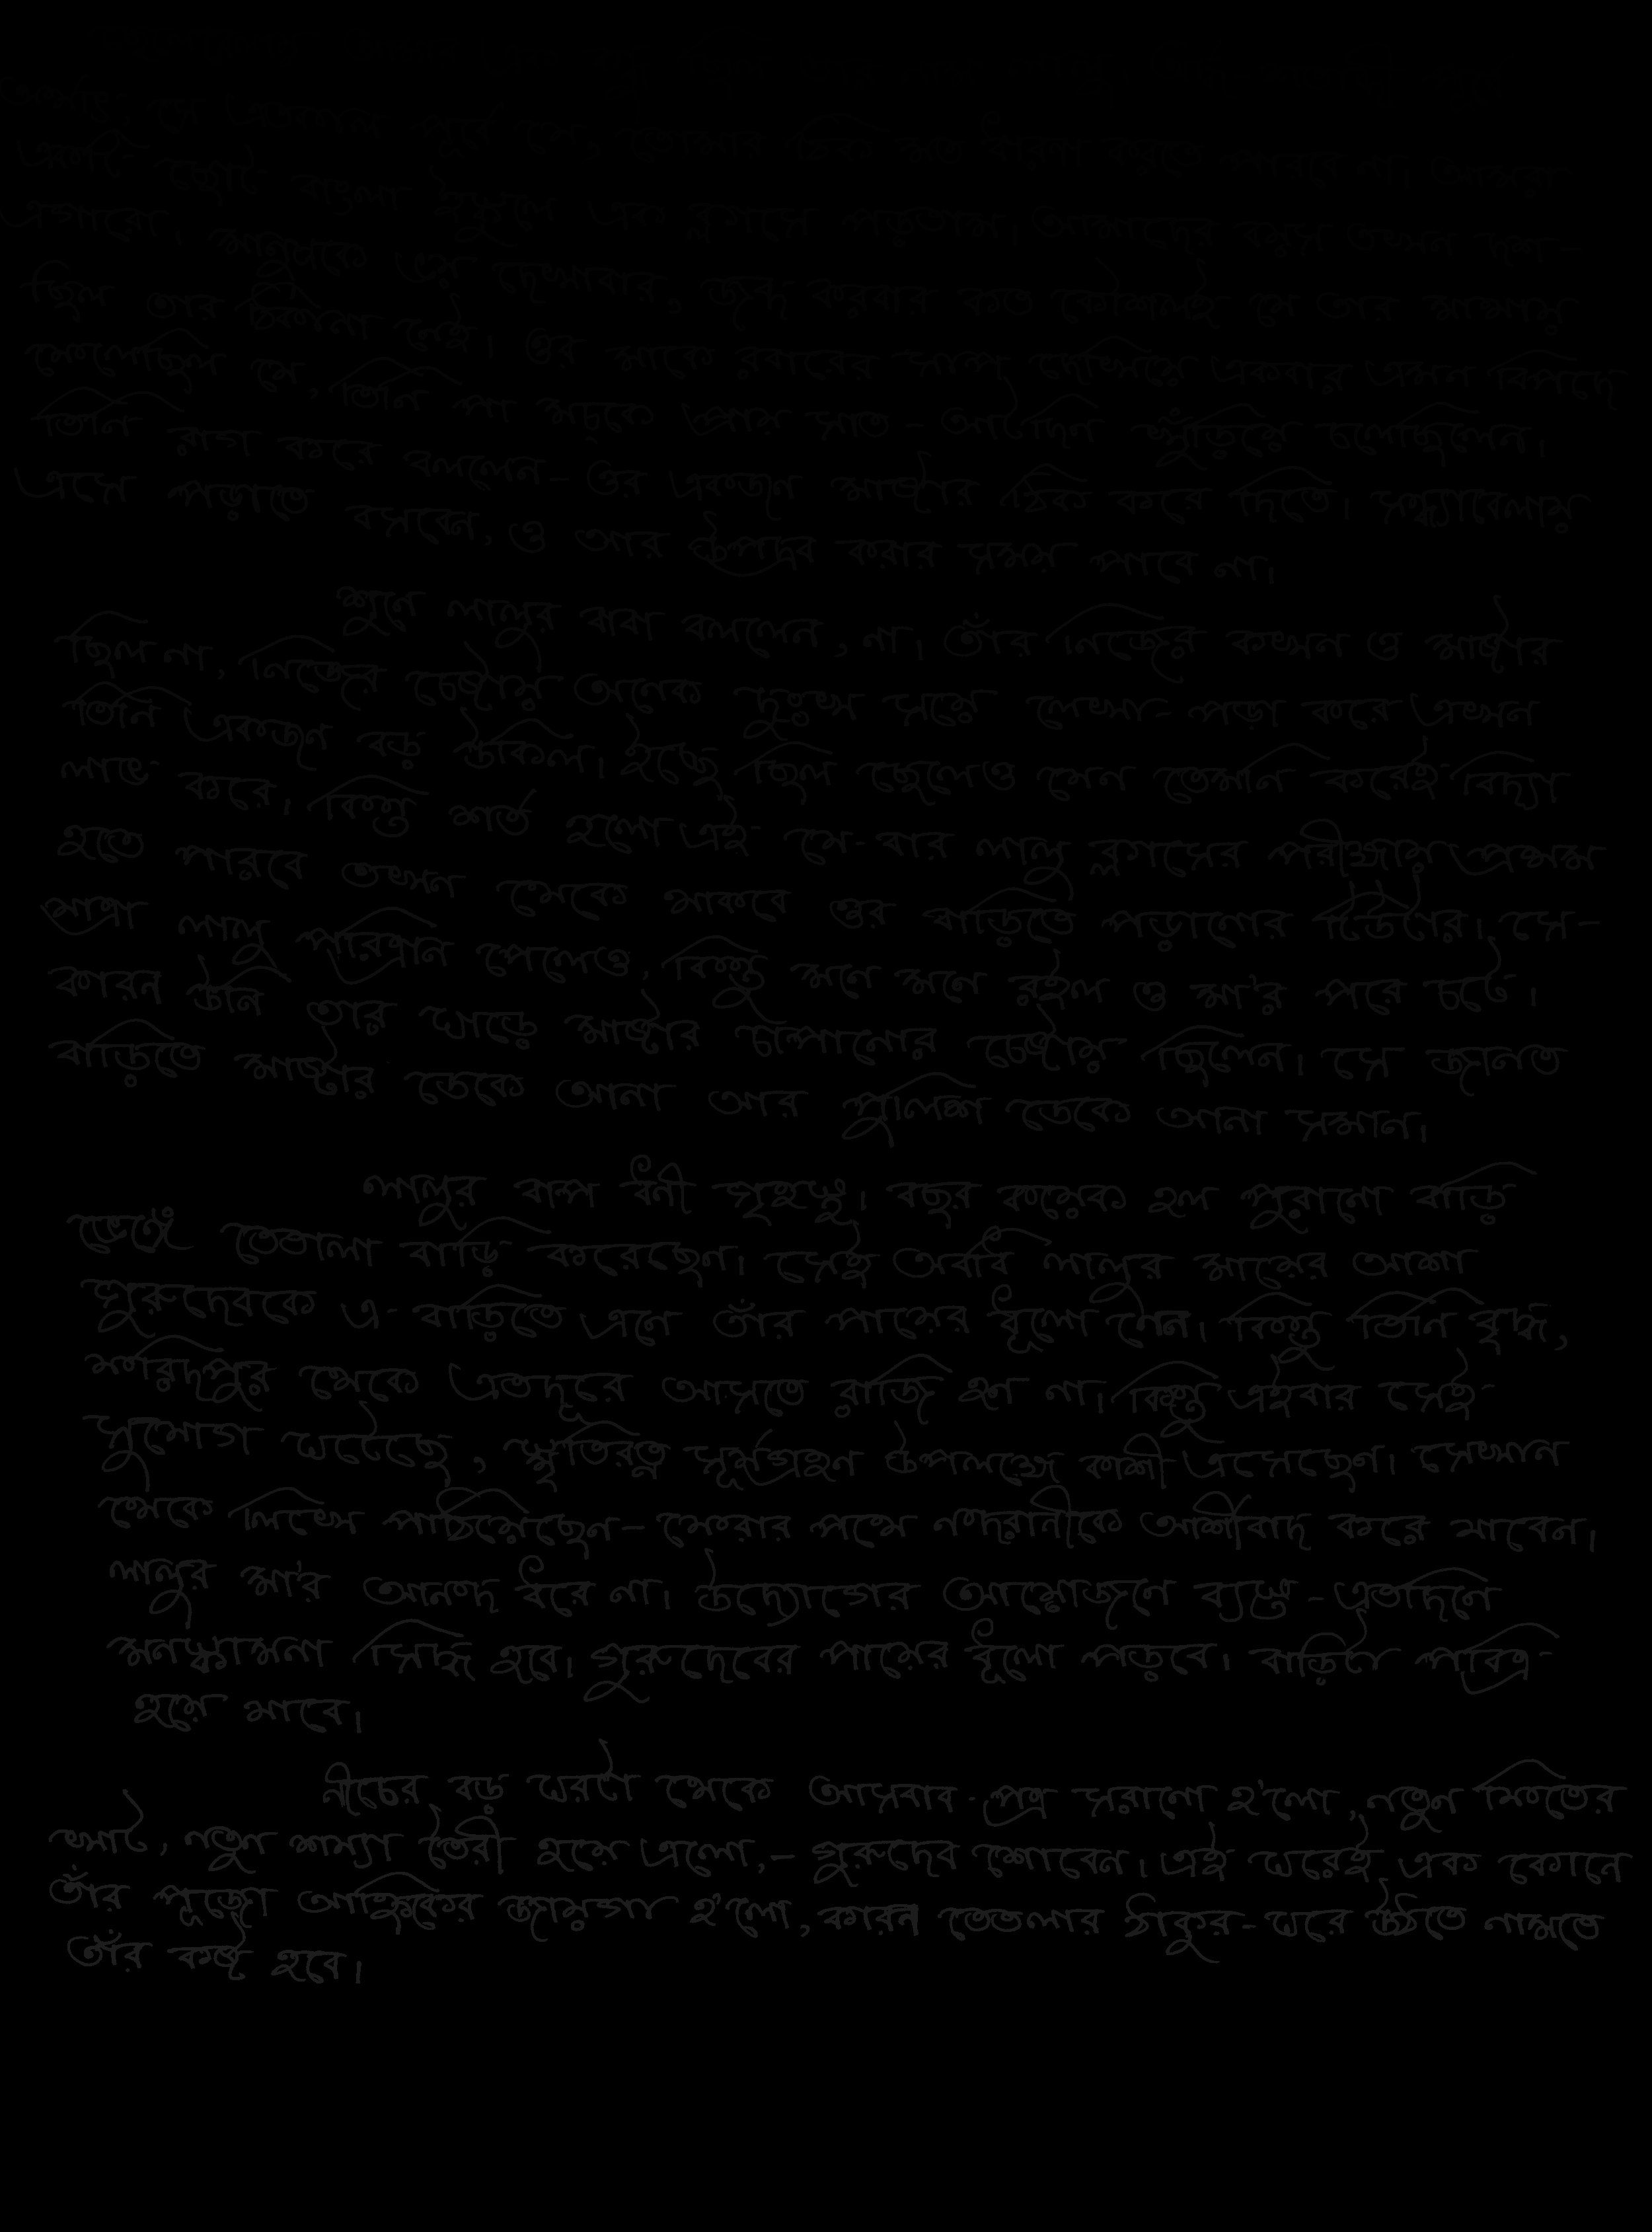 সে এতকাল পূর্বে যে, তোমরা ঠিক মত ধারনা করতে পারবে না। আমরা
একটি ছোট বাংলা স্কুলে এক ক্লাসে পড়তাম। আমাদের বয়স তখন দশ-
এগারো। মানুষকে ভয় দেখাবার, জব্দ করবার কত কৌশলই যে তার মাথায়
ছিল তার ঠিকানা নেই। ওর মাকে রবারের সাপ দেখিয়ে একবার এমন বিপদে
ফেলেছিল যে, তিনি পা মচকে প্রায় সাত-আটদিন খুঁড়িয়ে চলেছিলেন।
তিনি রাগ করে বললেন- ওর একজন মাষ্টার ঠিক করে দিতে। সন্ধ্যাবেলায়
এসে পড়াতে বসবেন, ও আর উপদ্রব করার সময় পাবে না।
শুনে লালুর বাবা বললেন, না। তাঁর নিজের কখন ও মাষ্টার
ছিল না, নিজের চেষ্টায় অনেক দুঃখ সয়ে লেখা-পড়া করে এখন
তিনি একজন বড় উকিল। ইচ্ছে ছিল ছেলেও যেন তেমনি করেই বিদ্যা
লাভ করে। কিন্তু শর্ত হলো এই যে-বার লালু ক্লাসের পরীক্ষায় প্রথম
হতে পারবে তখন থেকে থাকবে ওর বাড়িতে পড়ানোর টিউটর। সে-
যাত্রা লালু পরিত্রান পেলেও, কিন্তু মনে মনে রইল ও মা'র পরে চটে।
কারন উনি তার ঘাড়ে মাষ্টার চাপানোর চেষ্টায় ছিলেন। সে জানত
বাড়িতে মাষ্টার ডেকে আনা আর পুলিশ ডেকে আনা সমান।
লালুর বাপ ধনী গৃহস্থ। বছর কয়েক হল পুরানো বাড়ি
ভেঙ্গে তেতালা বাড়ি করেছেন। সেই অবধি লালুর মায়ের আশা
গুরুদেবকে এ-বাড়িতে এনে তাঁর পায়ের ধূলো নেন। কিন্তু তিনি বৃদ্ধ,
ফরিদপুর থেকে এতদূরে আসতে রাজি হন না। কিন্তু এইবার সেই
সুযোগ ঘটেছে, স্মৃতিরত্ন সূর্যগ্রহণ উপলক্ষে কাশী এসেছেন। সেখান
থেকে লিখে পাঠিয়েছেন-ফেরার পথে নন্দরানীকে আশীর্বাদ করে যাবেন।
লালুর মা'র আনন্দ ধরে না। উদ্যোগের আয়োজনে ব্যস্ত-এতদিনে
মনস্কামনা সিদ্ধ হবে। গুরুদেবের পায়ের ধূলো পড়বে। বাড়িটা পবিত্র
হয়ে যাবে।
নীচের বড় ঘরটা থেকে আসবাব-পত্র সরানো হ'লো, নতুন ফিতের
খাট, নতুন শয্যা তৈরী হয়ে এলো,- গুরুদেব শোবেন। এই ঘরেই এক কোনে
তাঁর পূজো আহ্নিকের জায়গা হ'লো, কারন তেতলার ঠাকুর-ঘরে উঠতে নামতে
তাঁর কষ্ট হবে।